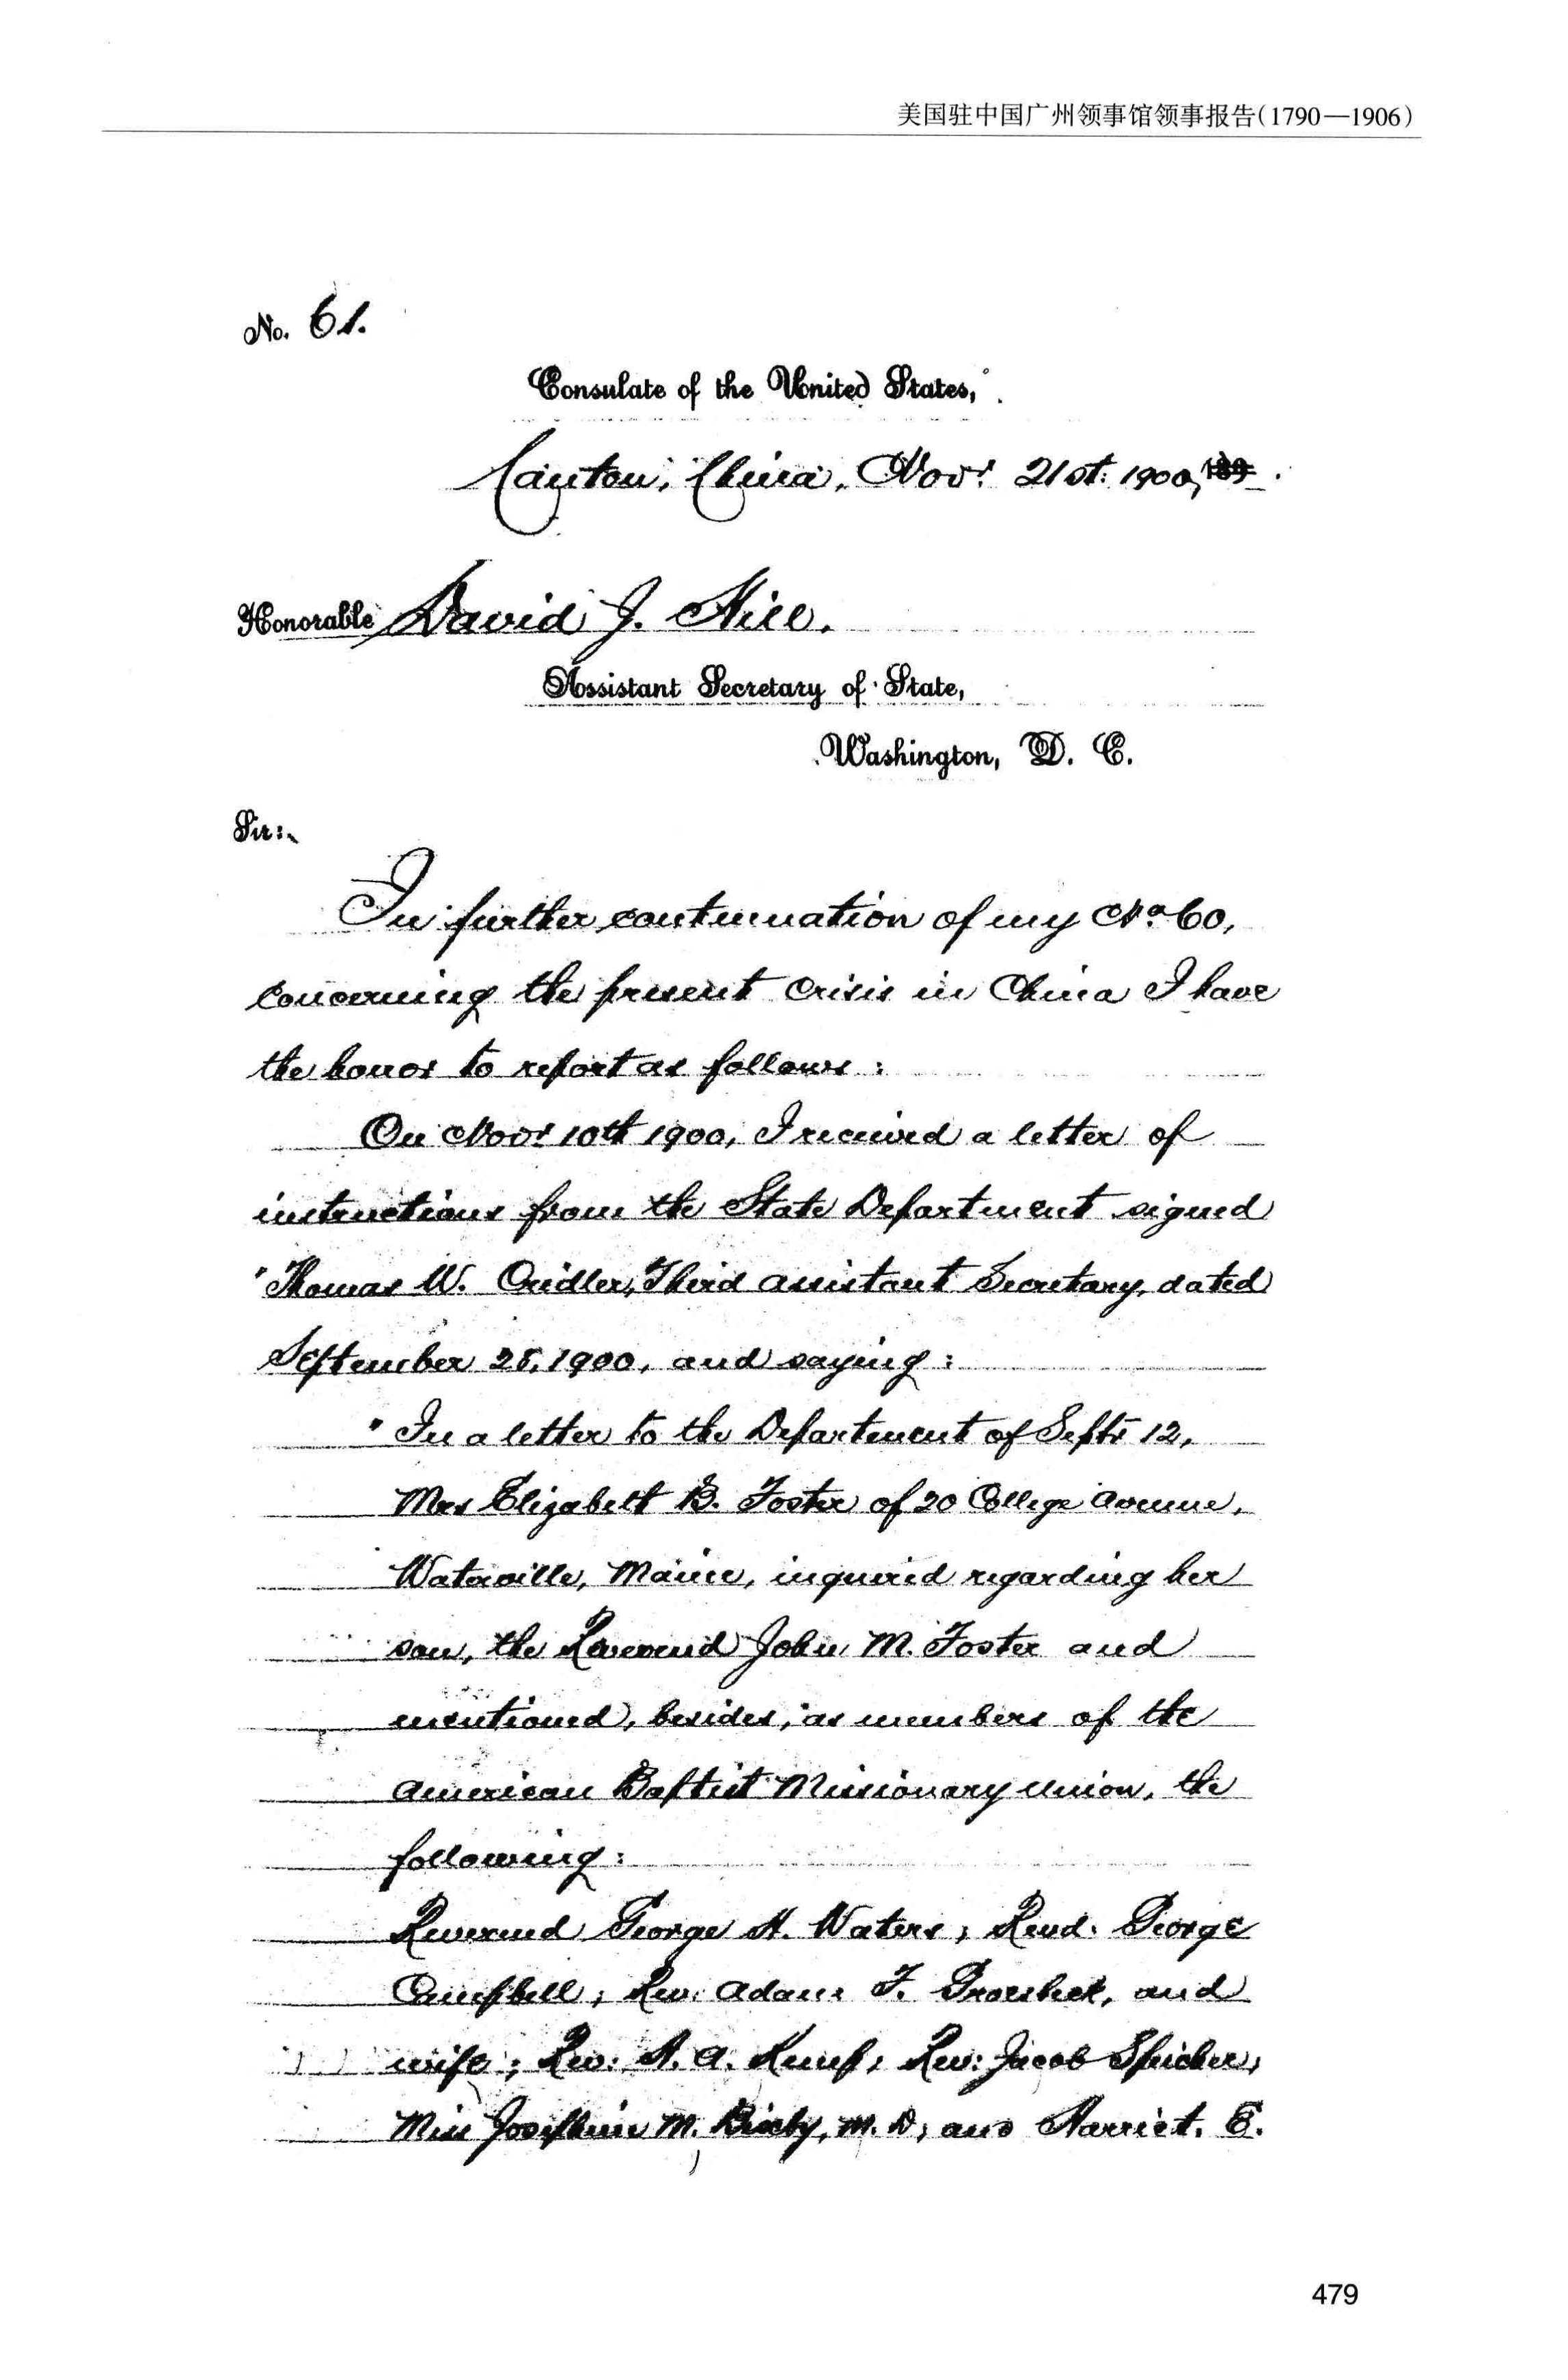 美国驻中国广州领事馆领事报告(1790—1906)
No. 61.
Consulate of the United States,
Canton, China, Novr 21st. 1900, 189
Honorable David J. Hill.
Assistant Secretary of State,
Washington, D. C.
Sir:
In further continuation of my No 60,
concerning the present crisis in China I have
the honor to report as follows:
On Novr 10th 1900, I received a letter of
instructions from the State Department signed
"Thomas W. Cridler, Third assistant Secretary, dated
September 28, 1900, and saying:
"In a letter to the Department of Septr 12,
Mrs Elizabeth B. Foster of 20 College Avenue,
Waterville, Maine, inquired regarding her
son, the Reverend John M. Foster and
mentioned, besides, as members of the
American Baptist Missionary Union, the
following:
Reverend George H. Waters; Revd. George
Campbell; Rev. Adam F. Groesbeck, and
wife; Rev: H. A. Kemp; Rev: Jacob Speicher;
Miss Josephine M. Bixby, M. D; and Harriet. E.
479